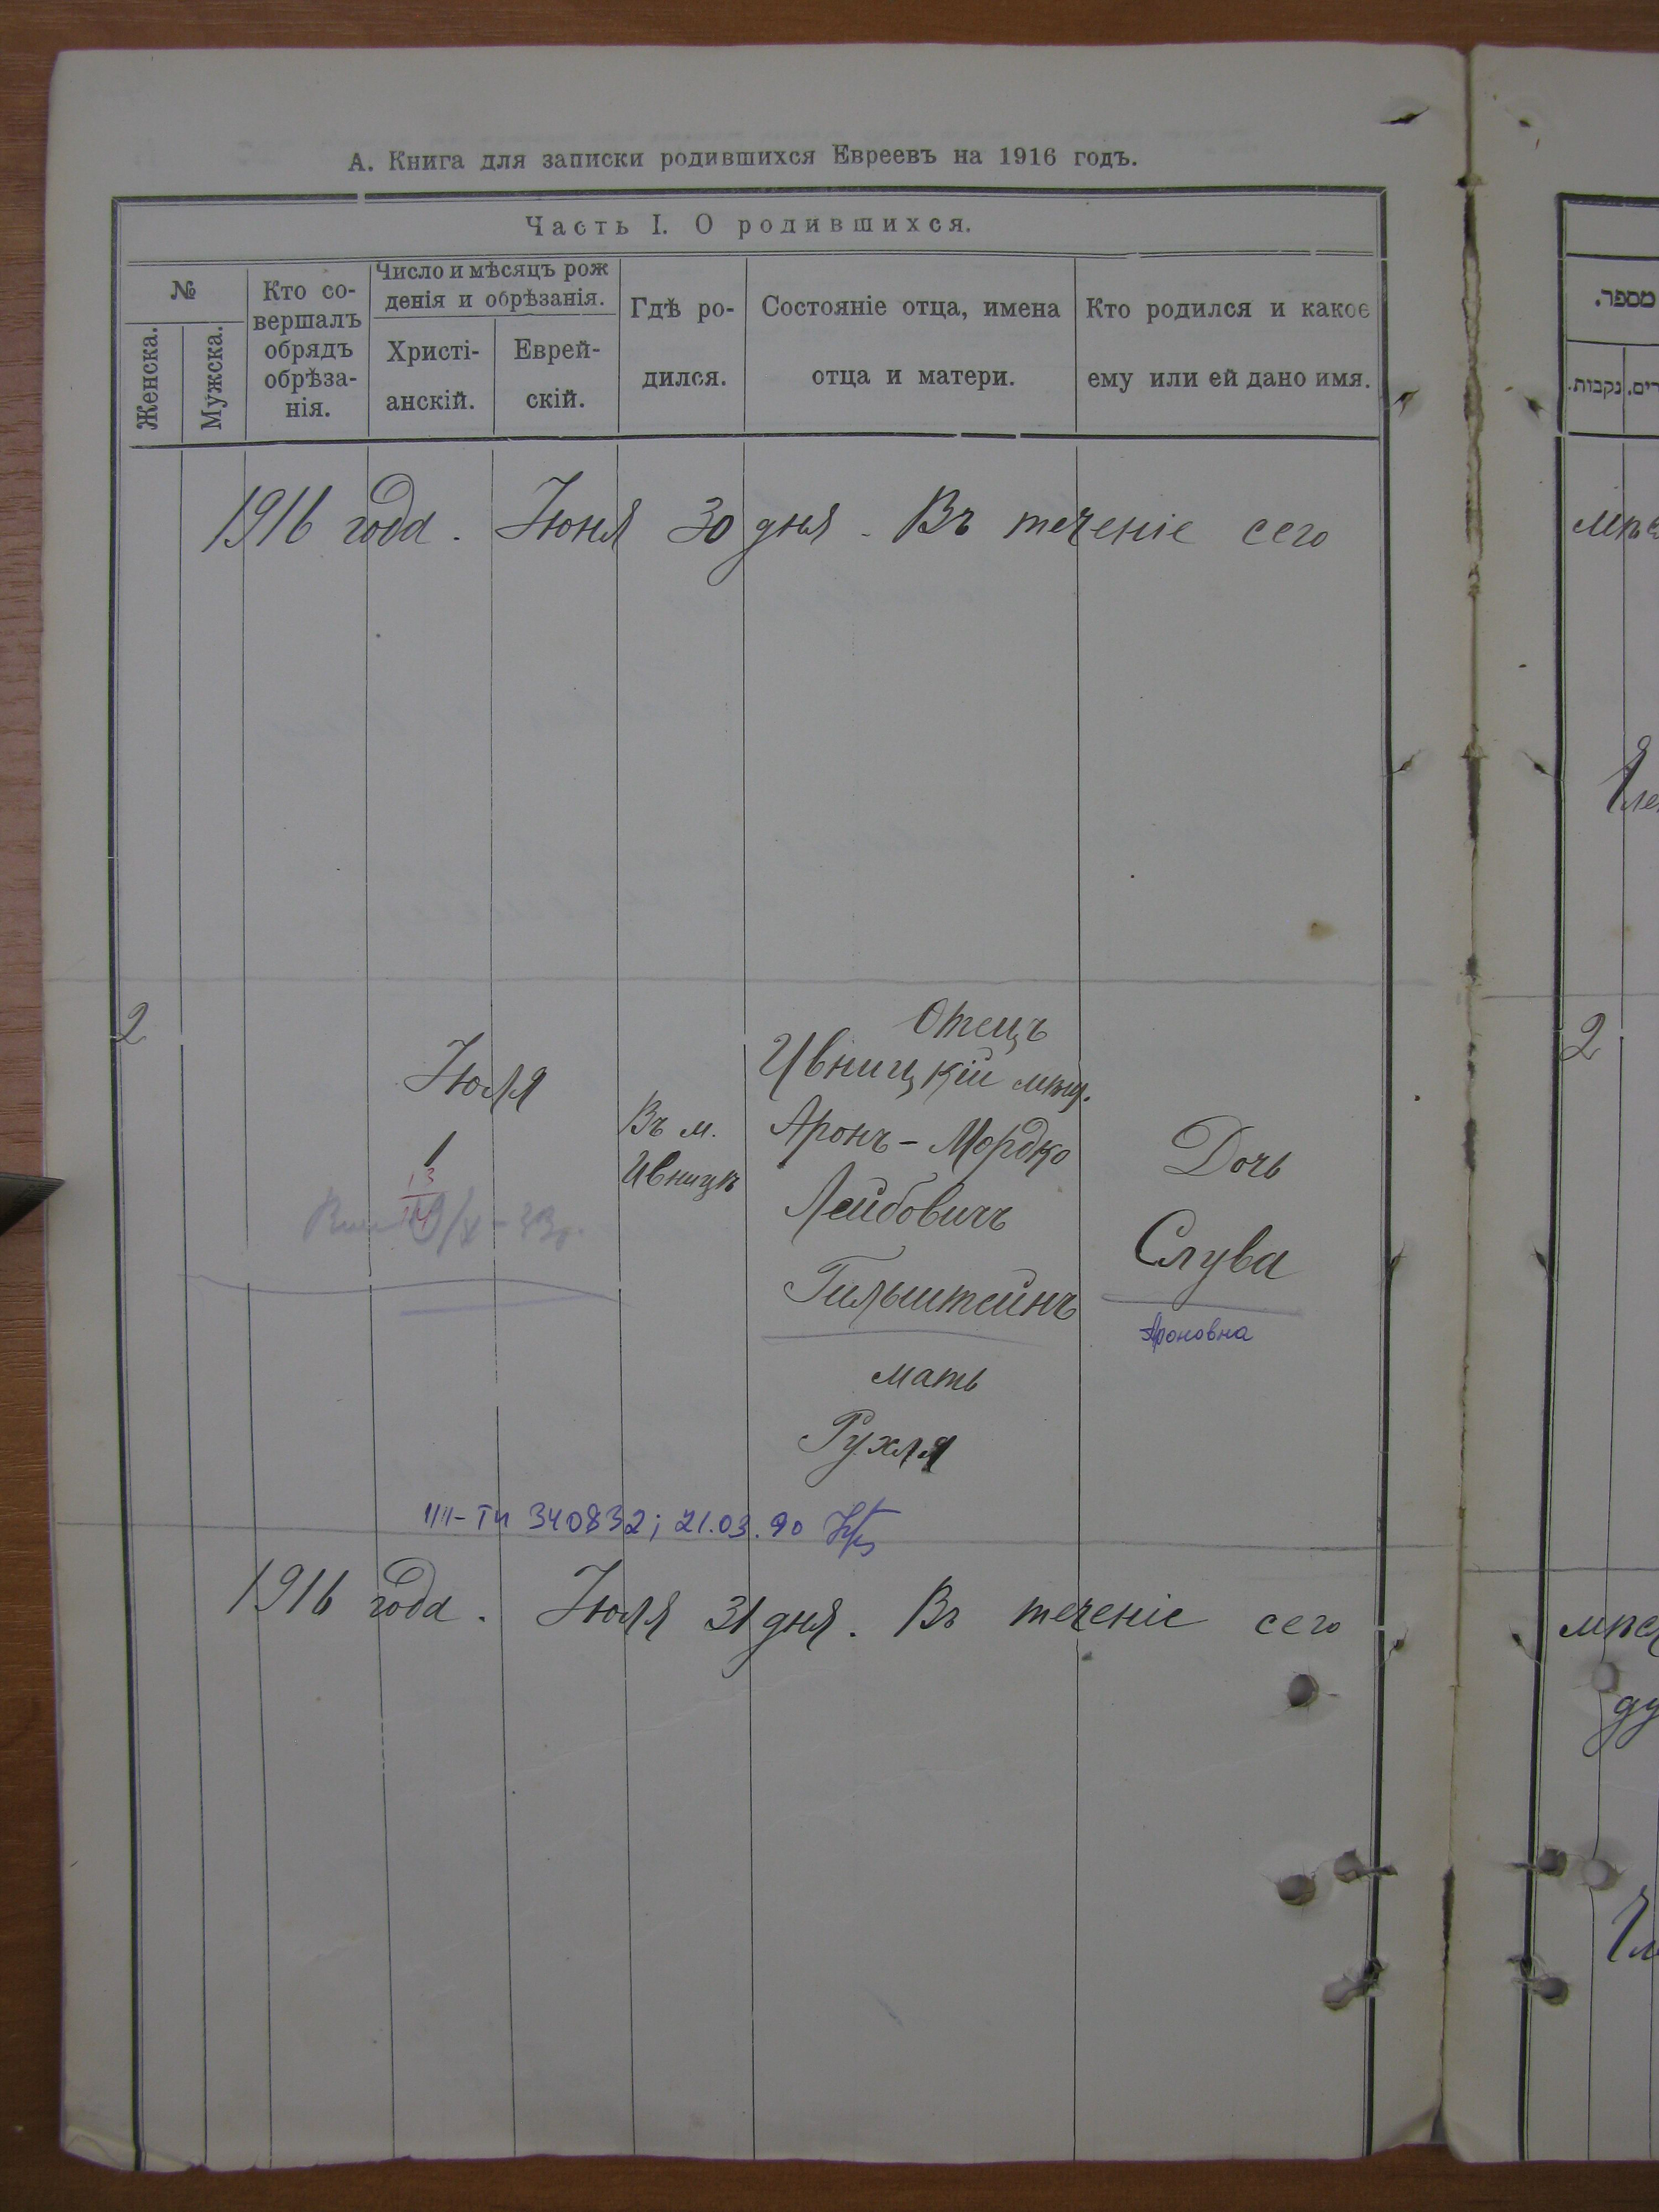 А. Книга для записки родившихся Евреевъ на 1916 годъ.
Часть I. О родившихся.
№
Женска.
Мужска.
Кто со-
вершалъ
обрядъ
обрѣза-
нія.
Число и мѣсяцъ рож
денія и обрѣзанія.
Христі-
анскій.
Еврей-
скій.
Гдѣ ро-
дился.
Состояніе отца, имена
отца и матери.
Кто родился и какое
ему или ей дано имя.
1916 года. Іюня 30 дня. Въ теченіе сего
2
Іюля
1
13
14
Въ м.
Ивницѣ
Отецъ
Ивницкій мѣщ.
Аронъ-Мордко
Лейбовичъ
Гильштейнъ
мать
Рухля
Дочь
Слува
Ароновна
340832; 21.03.90
1916 года. Іюля 31 дня. Въ теченіе сего
מספר.
נקבות.
2